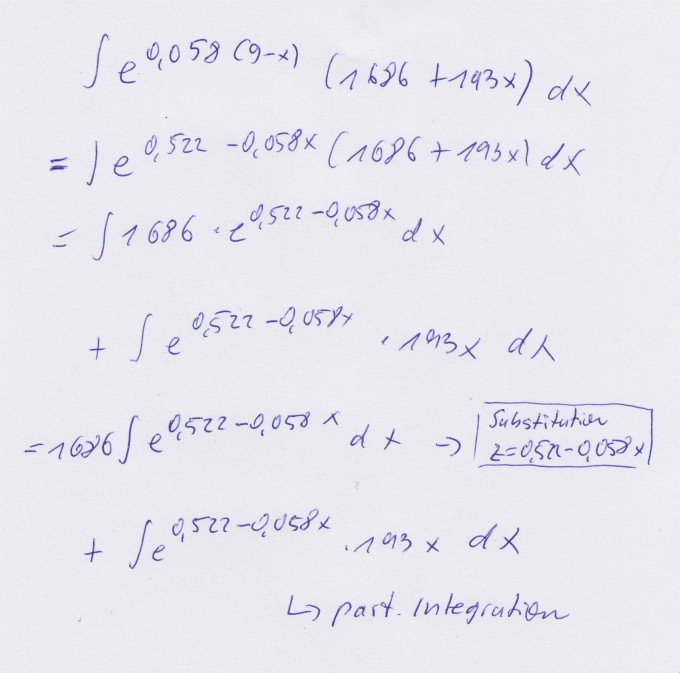 ∫ e^{0,058 (9-x)} (1686 + 193x) dx
= ∫ e^{0,522 - 0,058x} (1686 + 193x) dx
= ∫ 1686 · e^{0,522 - 0,058x} dx
+ ∫ e^{0,522 - 0,058x} · 193x dx
= 1686 ∫ e^{0,522 - 0,058x} dx → Substitution
z = 0,522 - 0,058x
+ ∫ e^{0,522 - 0,058x} · 193x dx
↳ part. Integration